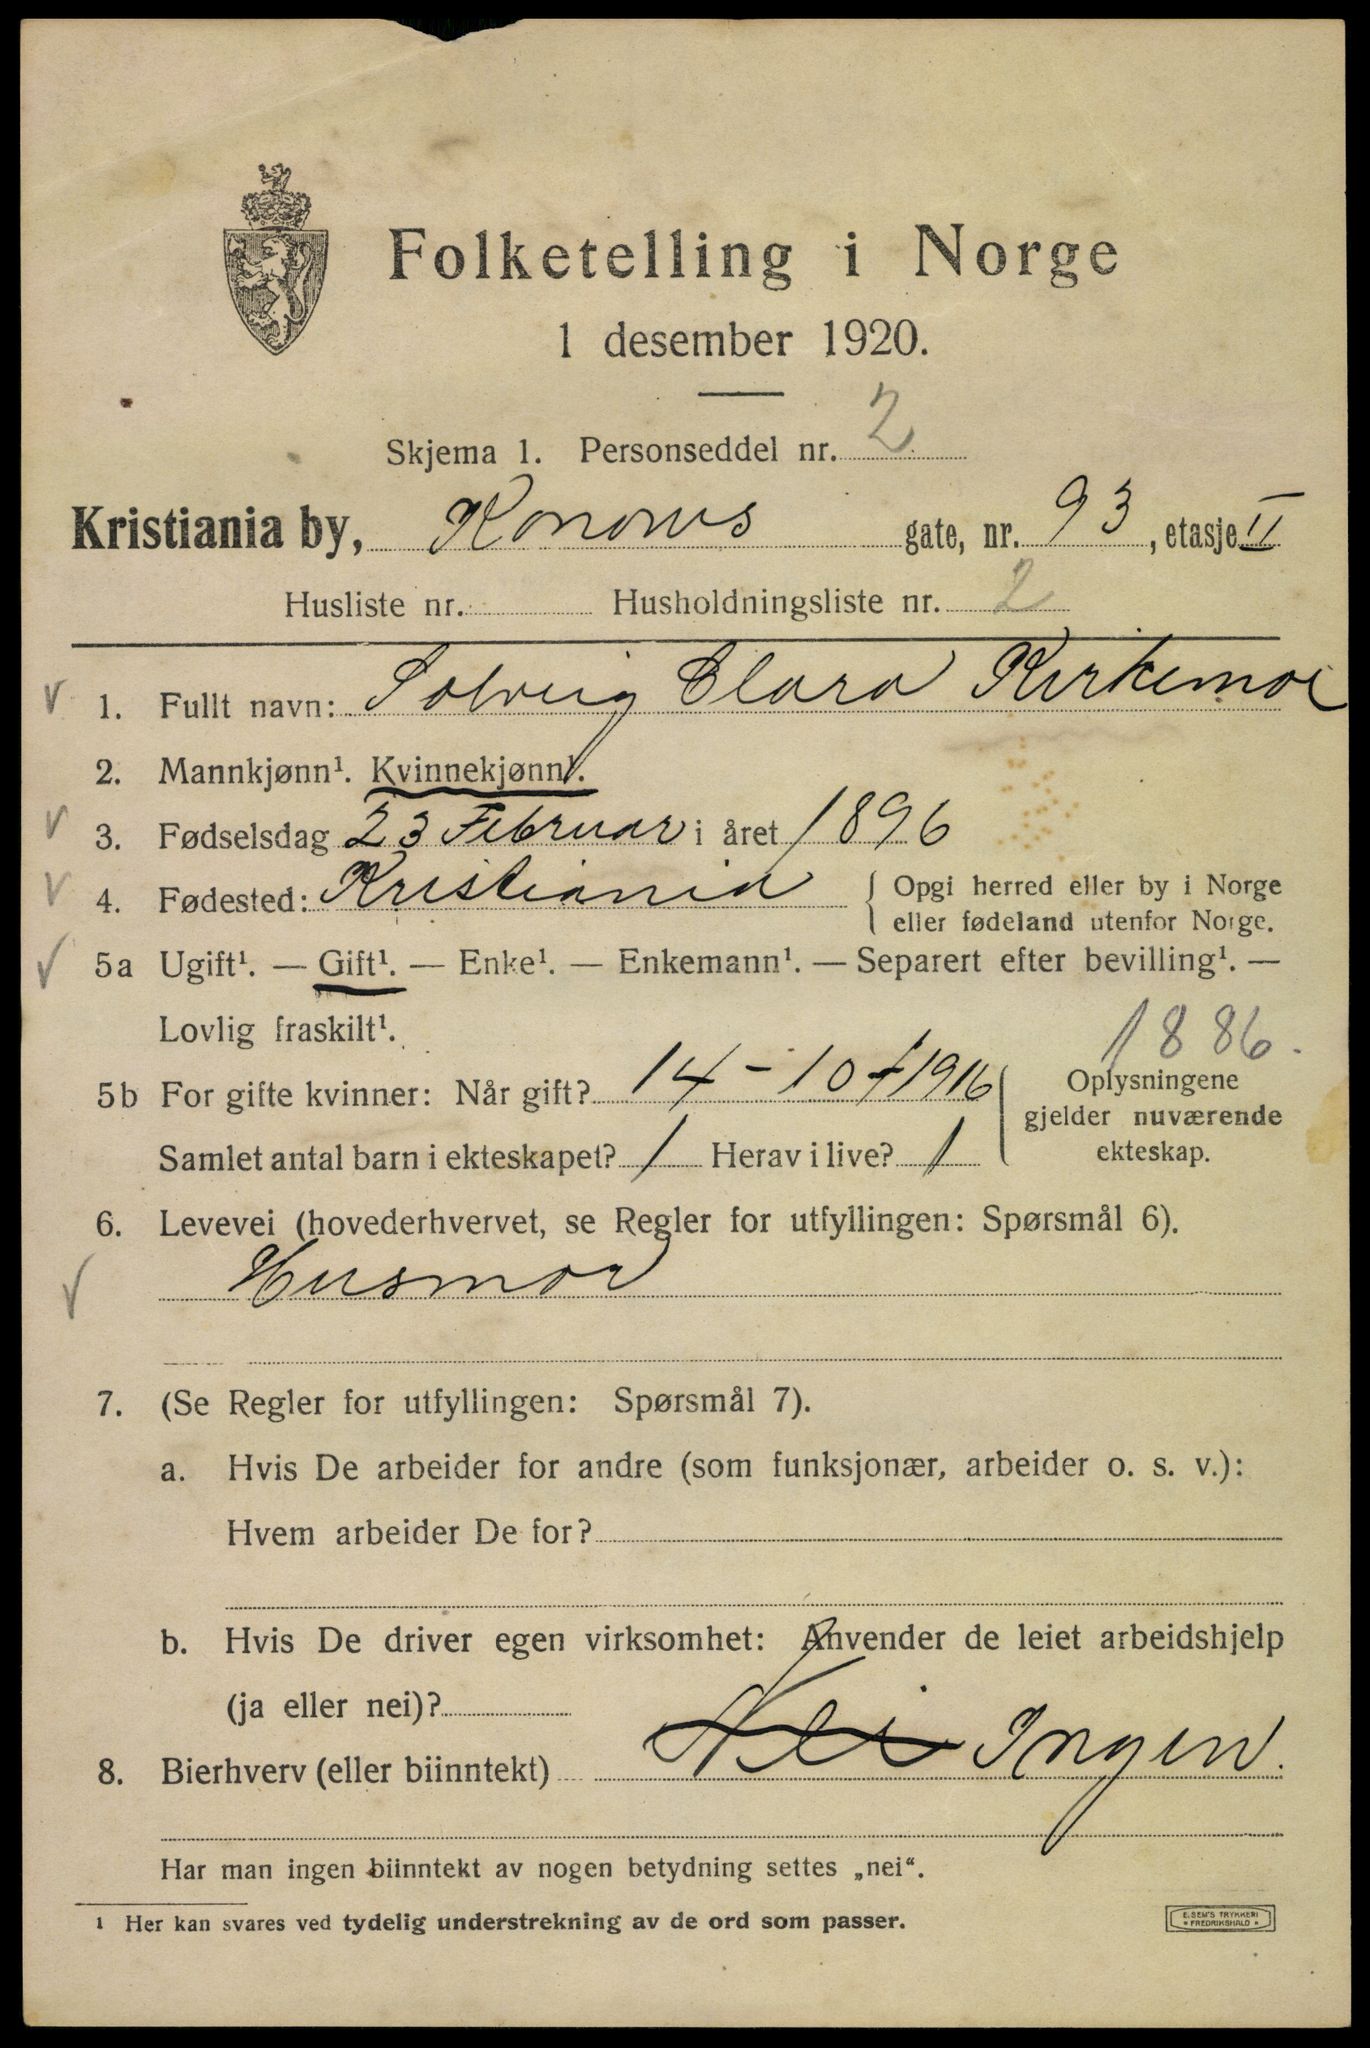 Folketelling i Norge
1 desember 1920.
Skjema 1. Personseddel nr. 2
Kristiania by, Konows gate, nr. 93, etasje II
Husliste nr. Husholdningsliste nr. 2
1. Fullt navn: Solveig Clara Kirkemoe
2. Mannkjønn¹. Kvinnekjønn¹.
3. Fødselsdag 23 Februar i året 1896
4. Fødested: Kristiania { Opgi herred eller by i Norge
eller fødeland utenfor Norge.
5a Ugift¹. — Gift¹. — Enke¹. — Enkemann¹. — Separert efter bevilling¹. —
Lovlig fraskilt¹.
1886.
5b For gifte kvinner: Når gift? 14 - 10 - 1916
Samlet antal barn i ekteskapet? 1 Herav i live? 1
Oplysningene
gjelder nuværende
ekteskap.
6. Levevei (hovederhvervet, se Regler for utfyllingen: Spørsmål 6).
Husmor
7. (Se Regler for utfyllingen: Spørsmål 7).
a. Hvis De arbeider for andre (som funksjonær, arbeider o. s. v.):
Hvem arbeider De for?
b. Hvis De driver egen virksomhet: Anvender de leiet arbeidshjelp
(ja eller nei)?
8. Bierhverv (eller biinntekt) Nei Ingen.
Har man ingen biinntekt av nogen betydning settes „nei“.
¹ Her kan svares ved tydelig understrekning av de ord som passer.
E. SEM'S TRYKKERI
* FREDRIKSHALD *